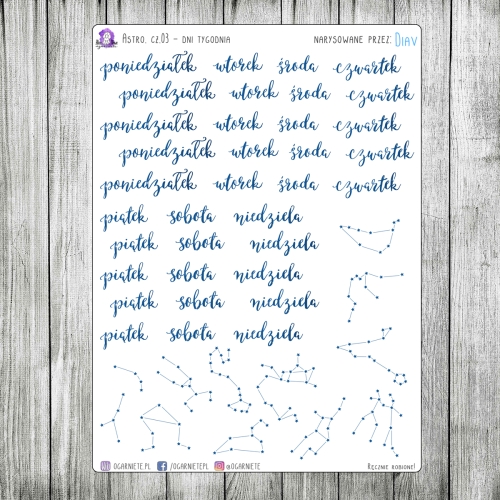 Astro. cz.03 - dni tygodnia narysowane przez: Diav
poniedziałek wtorek środa czwartek
poniedziałek wtorek środa czwartek
poniedziałek wtorek środa czwartek
poniedziałek wtorek środa czwartek
poniedziałek wtorek środa czwartek
piątek sobota niedziela
piątek sobota niedziela
piątek sobota niedziela
piątek sobota niedziela
piątek sobota niedziela
ogarniete.pl /ogarniete.pl @ogarniete Ręcznie robione!